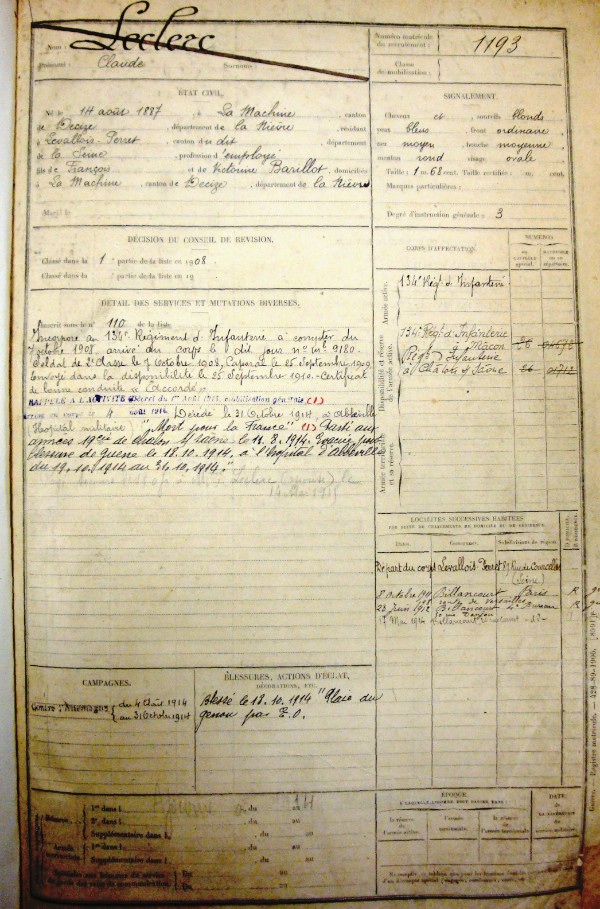 Nom : Leclerc
Prénoms : Claude Surnoms :
Numéro matricule du recrutement : 1193
Classe de mobilisation :
ÉTAT CIVIL.
Né le 14 août 1887, à La Machine, canton
de Decize, département de la Nièvre, résidant
à Levallois-Perret, canton du dit, département
de la Seine, profession d'employé
fils de François et de Victorine Barillot, domiciliés
à La Machine, canton de Decize, département de la Nièvre
Marié
SIGNALEMENT.
Cheveux et sourcils blonds
yeux bleus, front ordinaire,
nez moyen, bouche moyenne
menton rond visage ovale
Taille : 1 m. 68 cent. Taille rectifiée : m. cent.
Marques particulières :
Degré d'instruction générale : 3
DÉCISION DU CONSEIL DE RÉVISION.
Classé dans la 1 partie de la liste en 1908.
Classé dans la partie de la liste en 19
DÉTAIL DES SERVICES ET MUTATIONS DIVERSES.
Inscrit sous le n° 110 de la liste
Incorporé au 134e Régiment d'Infanterie à compter du
7 octobre 1908, arrivé au corps le dit jour no mle 9180.
Soldat de 2e Classe le 7 Octobre 1908, Caporal le 25 Septembre 1909
Envoyé dans la disponibilité le 25 Septembre 1910. Certificat
de bonne conduite "Accordé"
RAPPELÉ A L'ACTIVITÉ Décret du 1er Août 1914, mobilisation générale (1)
4 août 1914 Décédé le 31 Octobre 1914, à Abbeville
(Hôpital militaire) "Mort pour la France" (1) Parti aux
armées 19e Cie de Chalon s/ Saône le 11.8.1914. Evacué pour
blessure de guerre le 18.10.1914 à l'hôpital d'Abbeville
du 19.10.1914 au 31.10.1914."
CORPS D'AFFECTATION.
NUMÉROS
AU CONTRÔLE spécial.
MATRICULE OU DU répertoire.
Armée active.
134e Rég. d'Infanterie
Disponibilité et réserve de l'armée active.
134e Rég. d'Infanterie
à Mâcon
Rég. Infanterie
à Chalon s/ Saône
Armée territoriale et sa réserve.
LOCALITÉS SUCCESSIVES HABITÉES
PAR SUITE DE CHANGEMENTS DE DOMICILE OU DE RÉSIDENCE.
Dates. Communes. Subdivisions de région.
Départ du corps Levallois-Perret 87 Rue de Courcelles
(Seine)
8 Octobre 1911 Billancourt Paris R
de Versailles
23 Juin 1912 Billancourt 4e Bureau R
17 Mai 1914 Billancourt
CAMPAGNES.
Contre l'Allemagne du 4 Août 1914
au 31 Octobre 1914
BLESSURES, ACTIONS D'ÉCLAT,
DÉCORATIONS, ETC.
Blessé le 18.10.1914 "Plaie du
genou par E.O.
Réserve.
1re dans l du au
2e dans l du au
Supplémentaire dans l du au
Armée territoriale.
1re dans l du au
Supplémentaire dans l du au
Du au
Du au
ÉPOQUE
À LAQUELLE L'HOMME DOIT PASSER DANS :
la réserve de l'armée active.
l'armée territoriale.
la réserve de l'armée territoriale.
DATE
DE LA LIBÉRATION